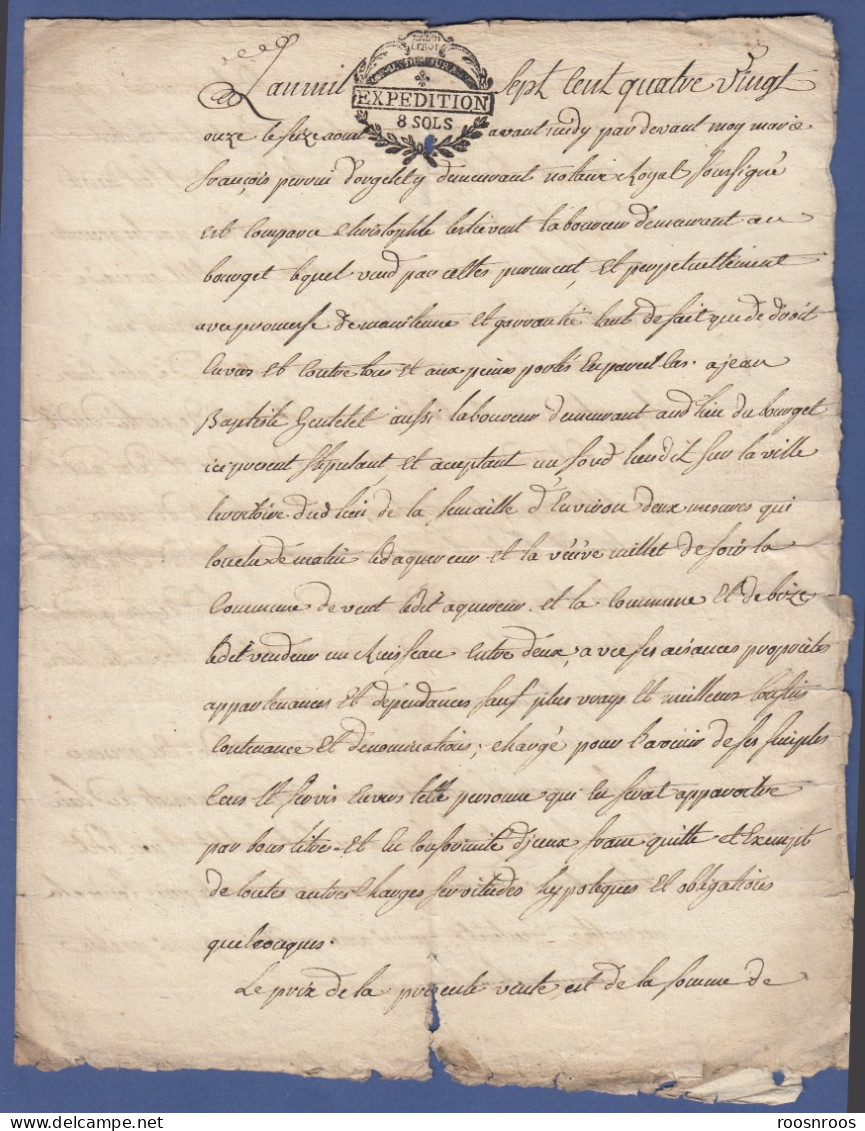 LA LOI
LE ROI
EXPEDITION
8 SOLS
L'an mil sept cent quatre vingt
onze le seize aout avant midy par devant moy marie
françois perrin d'orgelet y demeurant notaire Royal soussigné
est comparu christophle estievent laboureur demeurant au
bourget lequel vend par cettes purement, et perpetuellement
avec promesse de maintenue et garrantie tant de fait que de droit
Envers et contre tous et aux peines portés En pareil cas. a jean
Baptiste aussi laboureur demeurant aud lieu du bourget
ici present stipulant, et aceptant un fond lieu dit sur la ville
territoire dud lieu de la semaille d'Environ deux mesures qui
touche de matin led aquereur et la veuve millet de soir la
Commune de vent ledit aquereur. et la Commune et de bize
ledit vendeur un Ruisseau entre deux, avec ses aisances proprietes
appartenances et dependances sauf plus vrays et meilleurs confins
Contenance et denominations; chargé pour l'avenir de ses simples
Cens et servis Envers telle personne qui en serat apparoitre
par bons titre et en conformité d'jceux franc quitte et Exempt
de toutes autres charges servitudes hypoteques et obligations
quelconques.
Le prix de la presente vente est de la somme de
roosnroos